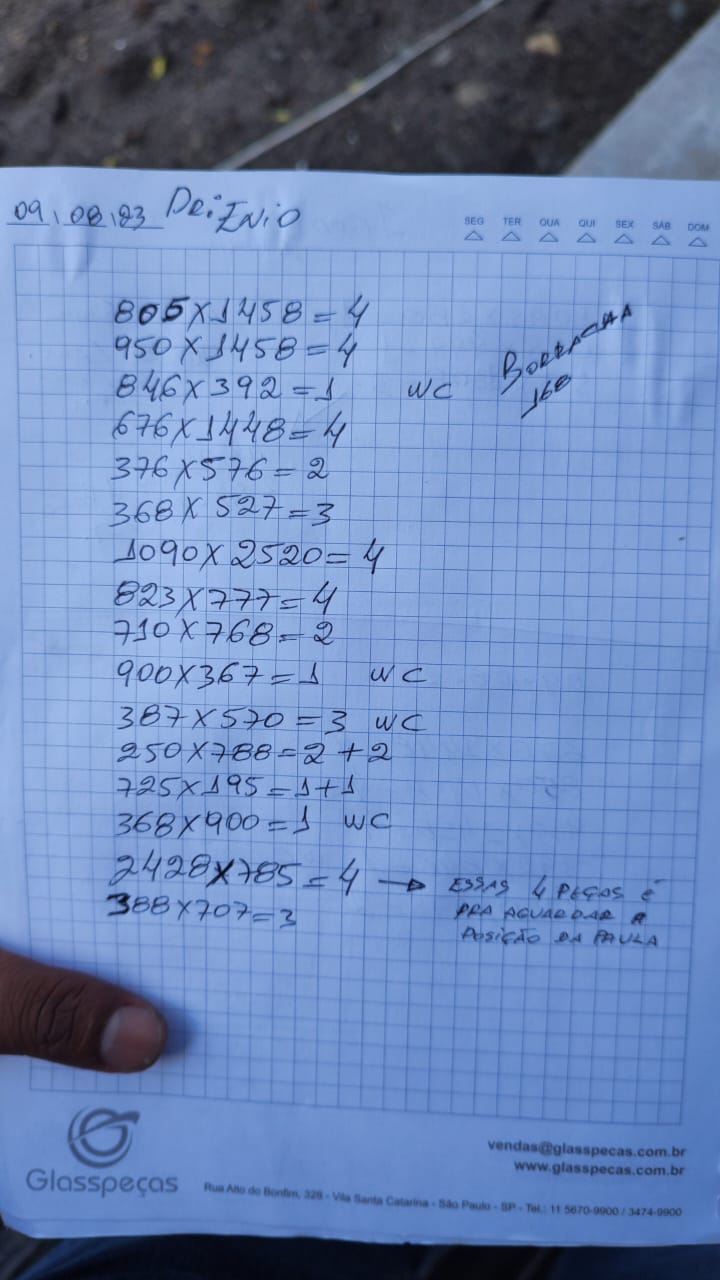 09 08 23 DR: ENIO
SEG TER QUA QUI SEX SÁB DOM
805X1458=4
950X1458=4
BORRACHA
168
846X392=1 WC
676X1448=4
376X576=2
368X527=3
1090X2520=4
823X777=4
710X768=2
900X367=1 WC
387X570=3 WC
250X788=2+2
725X195=1+1
368X900=1 WC
2428X785=4 → ESSAS 4 PEÇAS É
PRA AGUARDAR A
POSIÇÃO DA PAULA
388X707=3
Glasspeças
vendas@glasspecas.com.br
www.glasspecas.com.br
Rua Alto do Bonfim, 328 - Vila Santa Catarina - São Paulo - SP - Tel.: 11 5670-9900 / 3474-9900